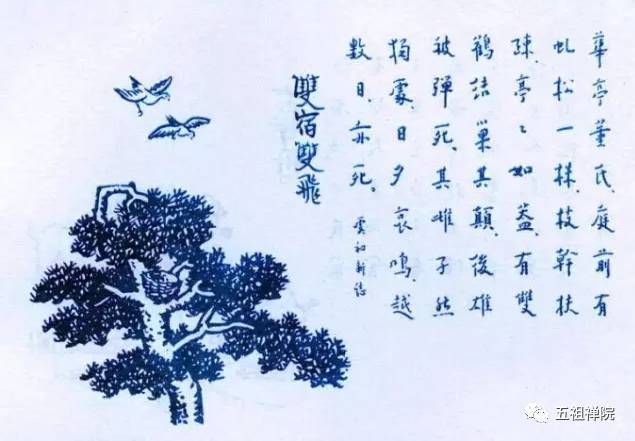 華亭董氏庭前有
虬松一株、枝幹扶
疎、亭々如蓋、有雙
鶴結巢其顛、後雄
被彈死、其雌孑然
獨處日夕哀鳴、越
數日亦死。
虞初新誌
雙宿雙飛
五祖禅院